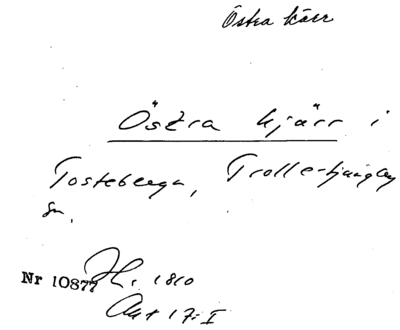 Östra Kärr
Östra kjärr i
Tosteberga, Trolle-Ljungby
sn.
Nr 10877 H. 1810
Akt 17: I